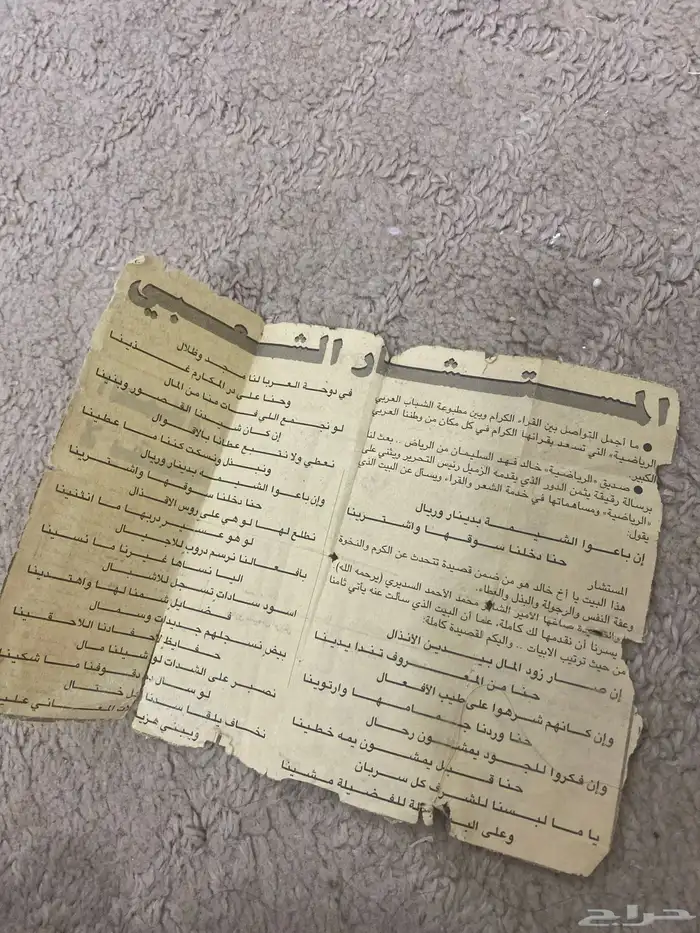 المستشار الشعبي
● ما أجمل التواصل بين القراء الكرام وبين مطبوعة الشباب العربي
«الرياضية» التي تسعد بقرائها الكرام في كل مكان من وطننا العربي
الكبير.
● صديق «الرياضية» خالد فهد السليمان من الرياض .. بعث لنا
برسالة رقيقة يثمن الدور الذي يقدمه الزميل رئيس التحرير ويثني على
«الرياضية» ومساهماتها في خدمة الشعر والقراء ويسأل عن البيت الذي
يقول:
إن باعوا الشيمة بدينار وريال
حنا دخلنا سوقها واشترينا
المستشار
هذا البيت يا أخ خالد هو من ضمن قصيدة تتحدث عن الكرم والنخوة
وعفة النفس والرجولة والبذل والعطاء.
والقصيدة صاغها الأمير الشاعر محمد الأحمد السديري (يرحمه الله)
يسرنا أن نقدمها لك كاملة، علما أن البيت الذي سألت عنه يأتي ثامنا
من حيث ترتيب الأبيات .. وإليكم القصيدة كاملة:
إن صار زود المال بيدين الأنذال
حنا من المعروف تندا يدينا
وإن كانهم شرهوا على طيب الأفعال
حنا وردنا جمامها وارتوينا
وإن فكروا للجود يمشون رحال
حنا قبل يمشون يمه خطينا
يا ما لبسنا للشرف كل سربال
وعلى الب للفضيلة مشينا
في دوحة العربا لنا مجد وظلال
وحنا على در المكارم غذينا
لو نجتمع اللي فات منا من المال
إن كان شيدنا القصور وبنينا
نعطي ولا نتبع عطانا بالأقوال
ونبذل ونسكت كننا ما عطينا
وإن باعوا الشيمه بدينار وريال
حنا دخلنا سوقها واشترينا
نطلع لها لو هي على روس الأقذال
لو هو عسير دربها ما انثنينا
بافعالنا نرسم دروب للأجيال
اليا نساها غيرنا ما نسينا
اسود سادات تسجل للأشبال
فضايل شمنا لها واهتدينا
بيض نسجلهم جديدات وسمال
حفايظ لاحفادنا اللاحقينا
نصبر على الشدات لو شيلنا مال
لو سال دفوفنا ما شكينا
نخاف يلقا سدنا ختال
ويبني المعاني علينا